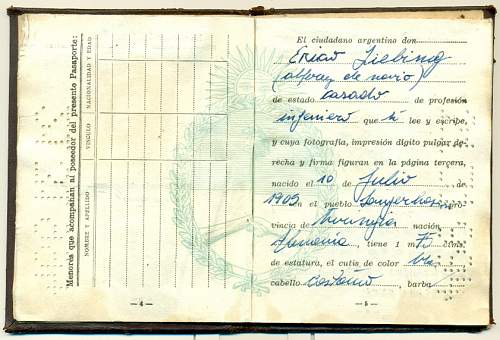 Menores que acompañan al poseedor del presente Pasaporte:
NOMBRE Y APELLIDO
VINCULO
NACIONALIDAD Y EDAD
— 4 —
El ciudadano argentino don
Liebing
(alferez de navio)
de estado casado de profesión
ingeniero que si lee y escribe,
y cuya fotografía, impresión dígito pulgar de-
recha y firma figuran en la página tercera,
nacido el 10 de Julio de
1905 en el pueblo pro-
vincia de Thuringia nación
Alemania, tiene 1 m. ctms.
de estatura, el cutis de color
cabello castaño, barba
— 5 —